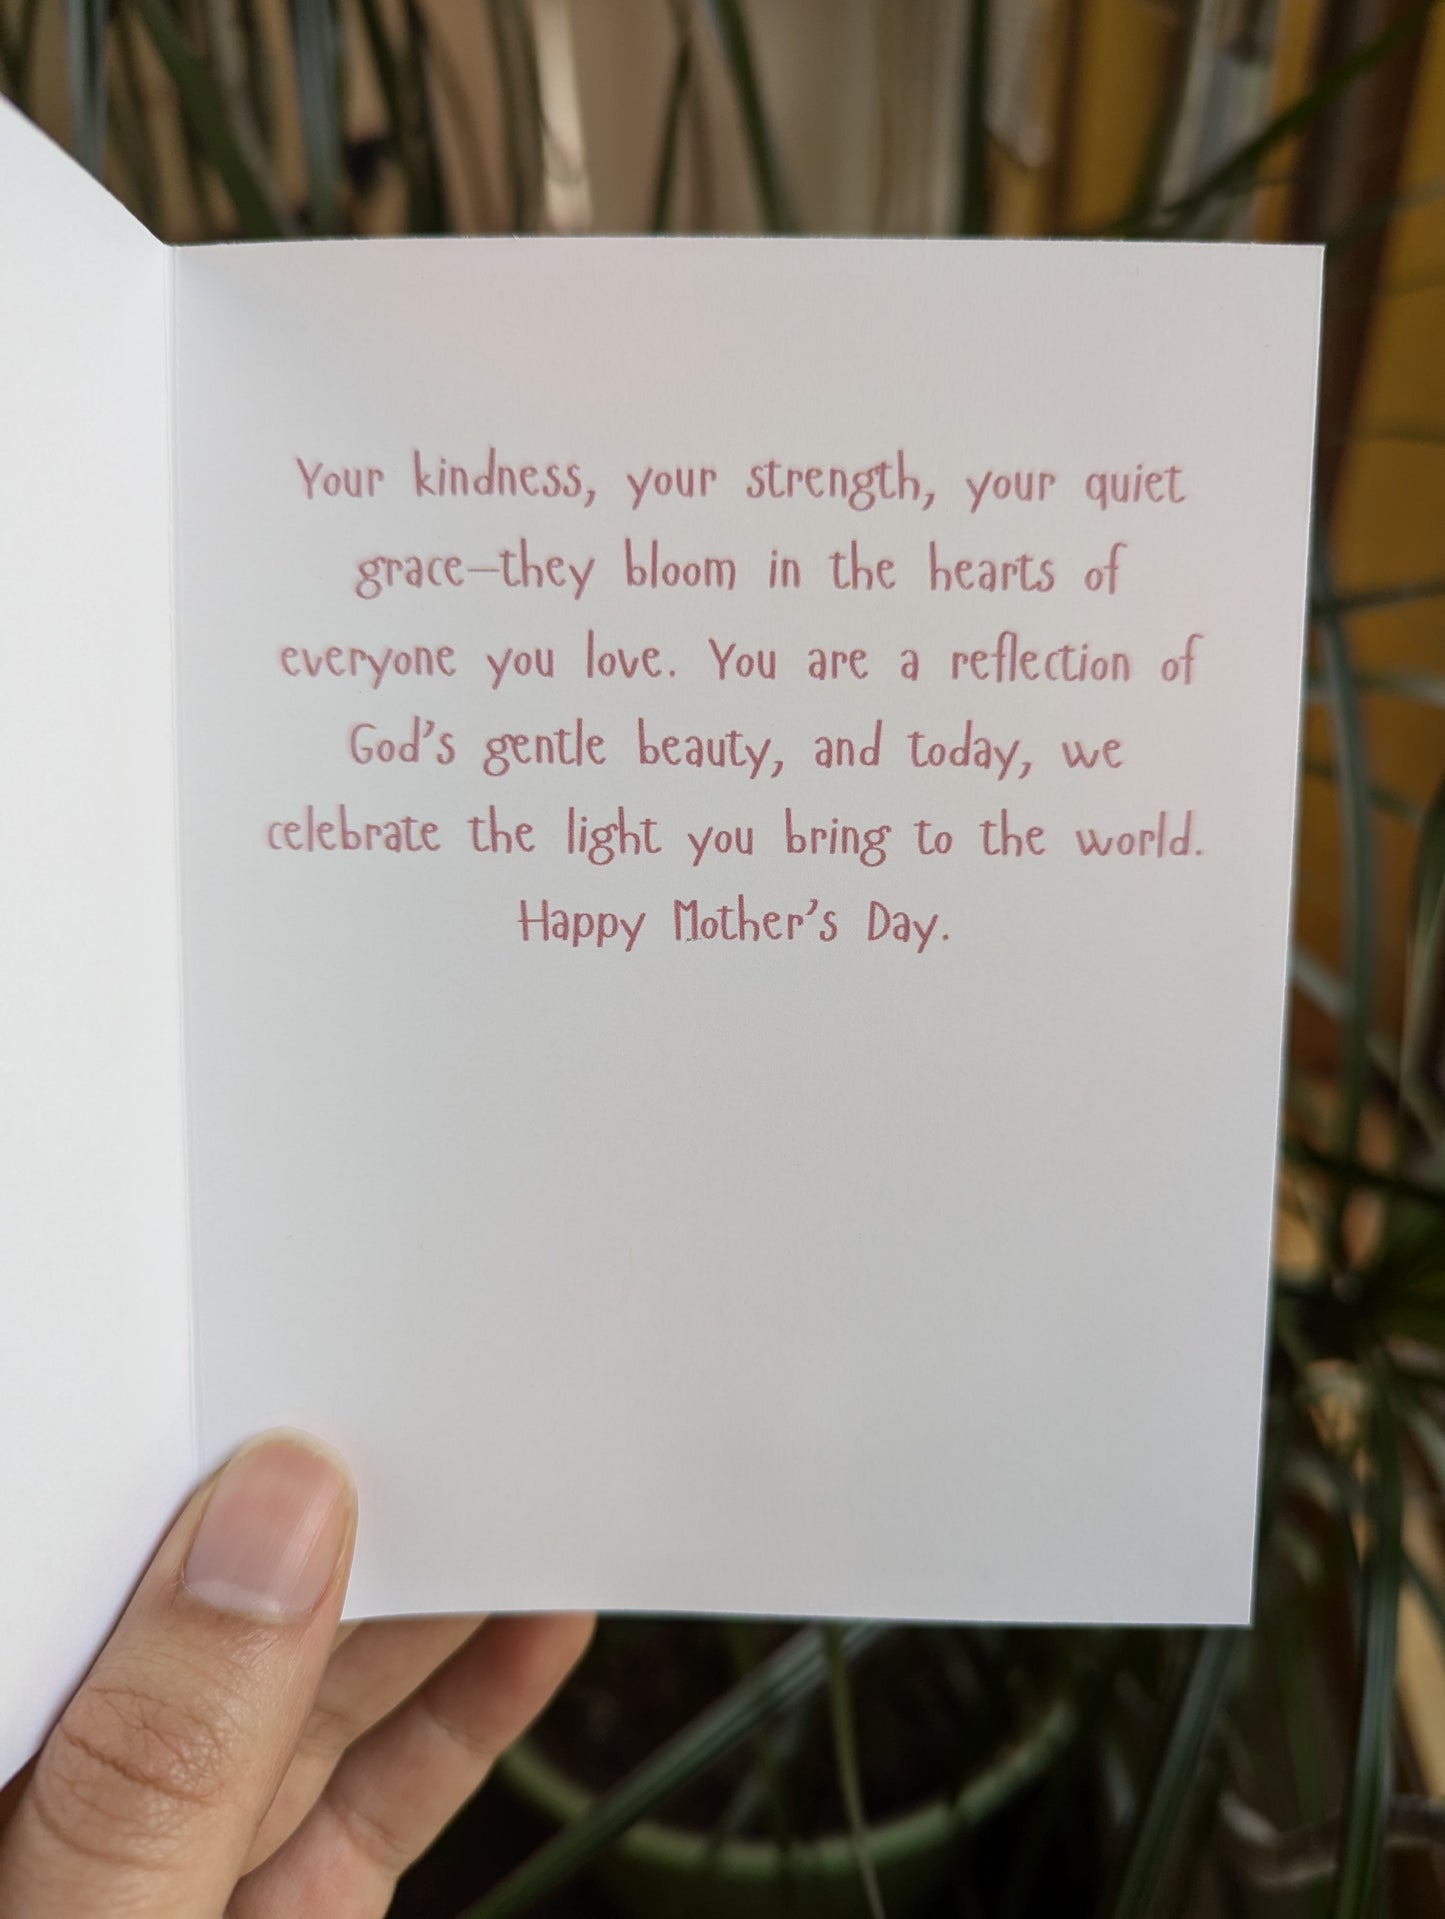 Your kindness, your strength, your quiet
grace—they bloom in the hearts of
everyone you love. You are a reflection of
God's gentle beauty, and today, we
celebrate the light you bring to the world.
Happy Mother's Day.